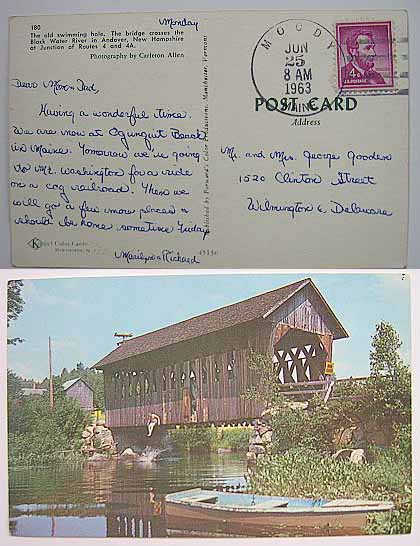 Monday
180
The old swimming hole. The bridge crosses the
Black Water River in Andover, New Hampshire
at Junction of Routes 4 and 4A.
Photography by Carleton Allen
Dear Mom & Dad,
Having a wonderful time.
We are now at Ogunquit Beach
in Maine. Tomorrow we're going
to Mt. Washington for a ride
on a cog railroad. Then we
will go a few more places &
should be home sometime Friday
Marilyn & Richard
Color Cards
45156
Published by Color Productions, Manchester, Vermont
MOODY
JUN
25
8 AM
1963
MAINE
4¢
POST CARD
Address
Mr. and Mrs. George Gooden
1520 Clinton Street
Wilmington 6, Delaware